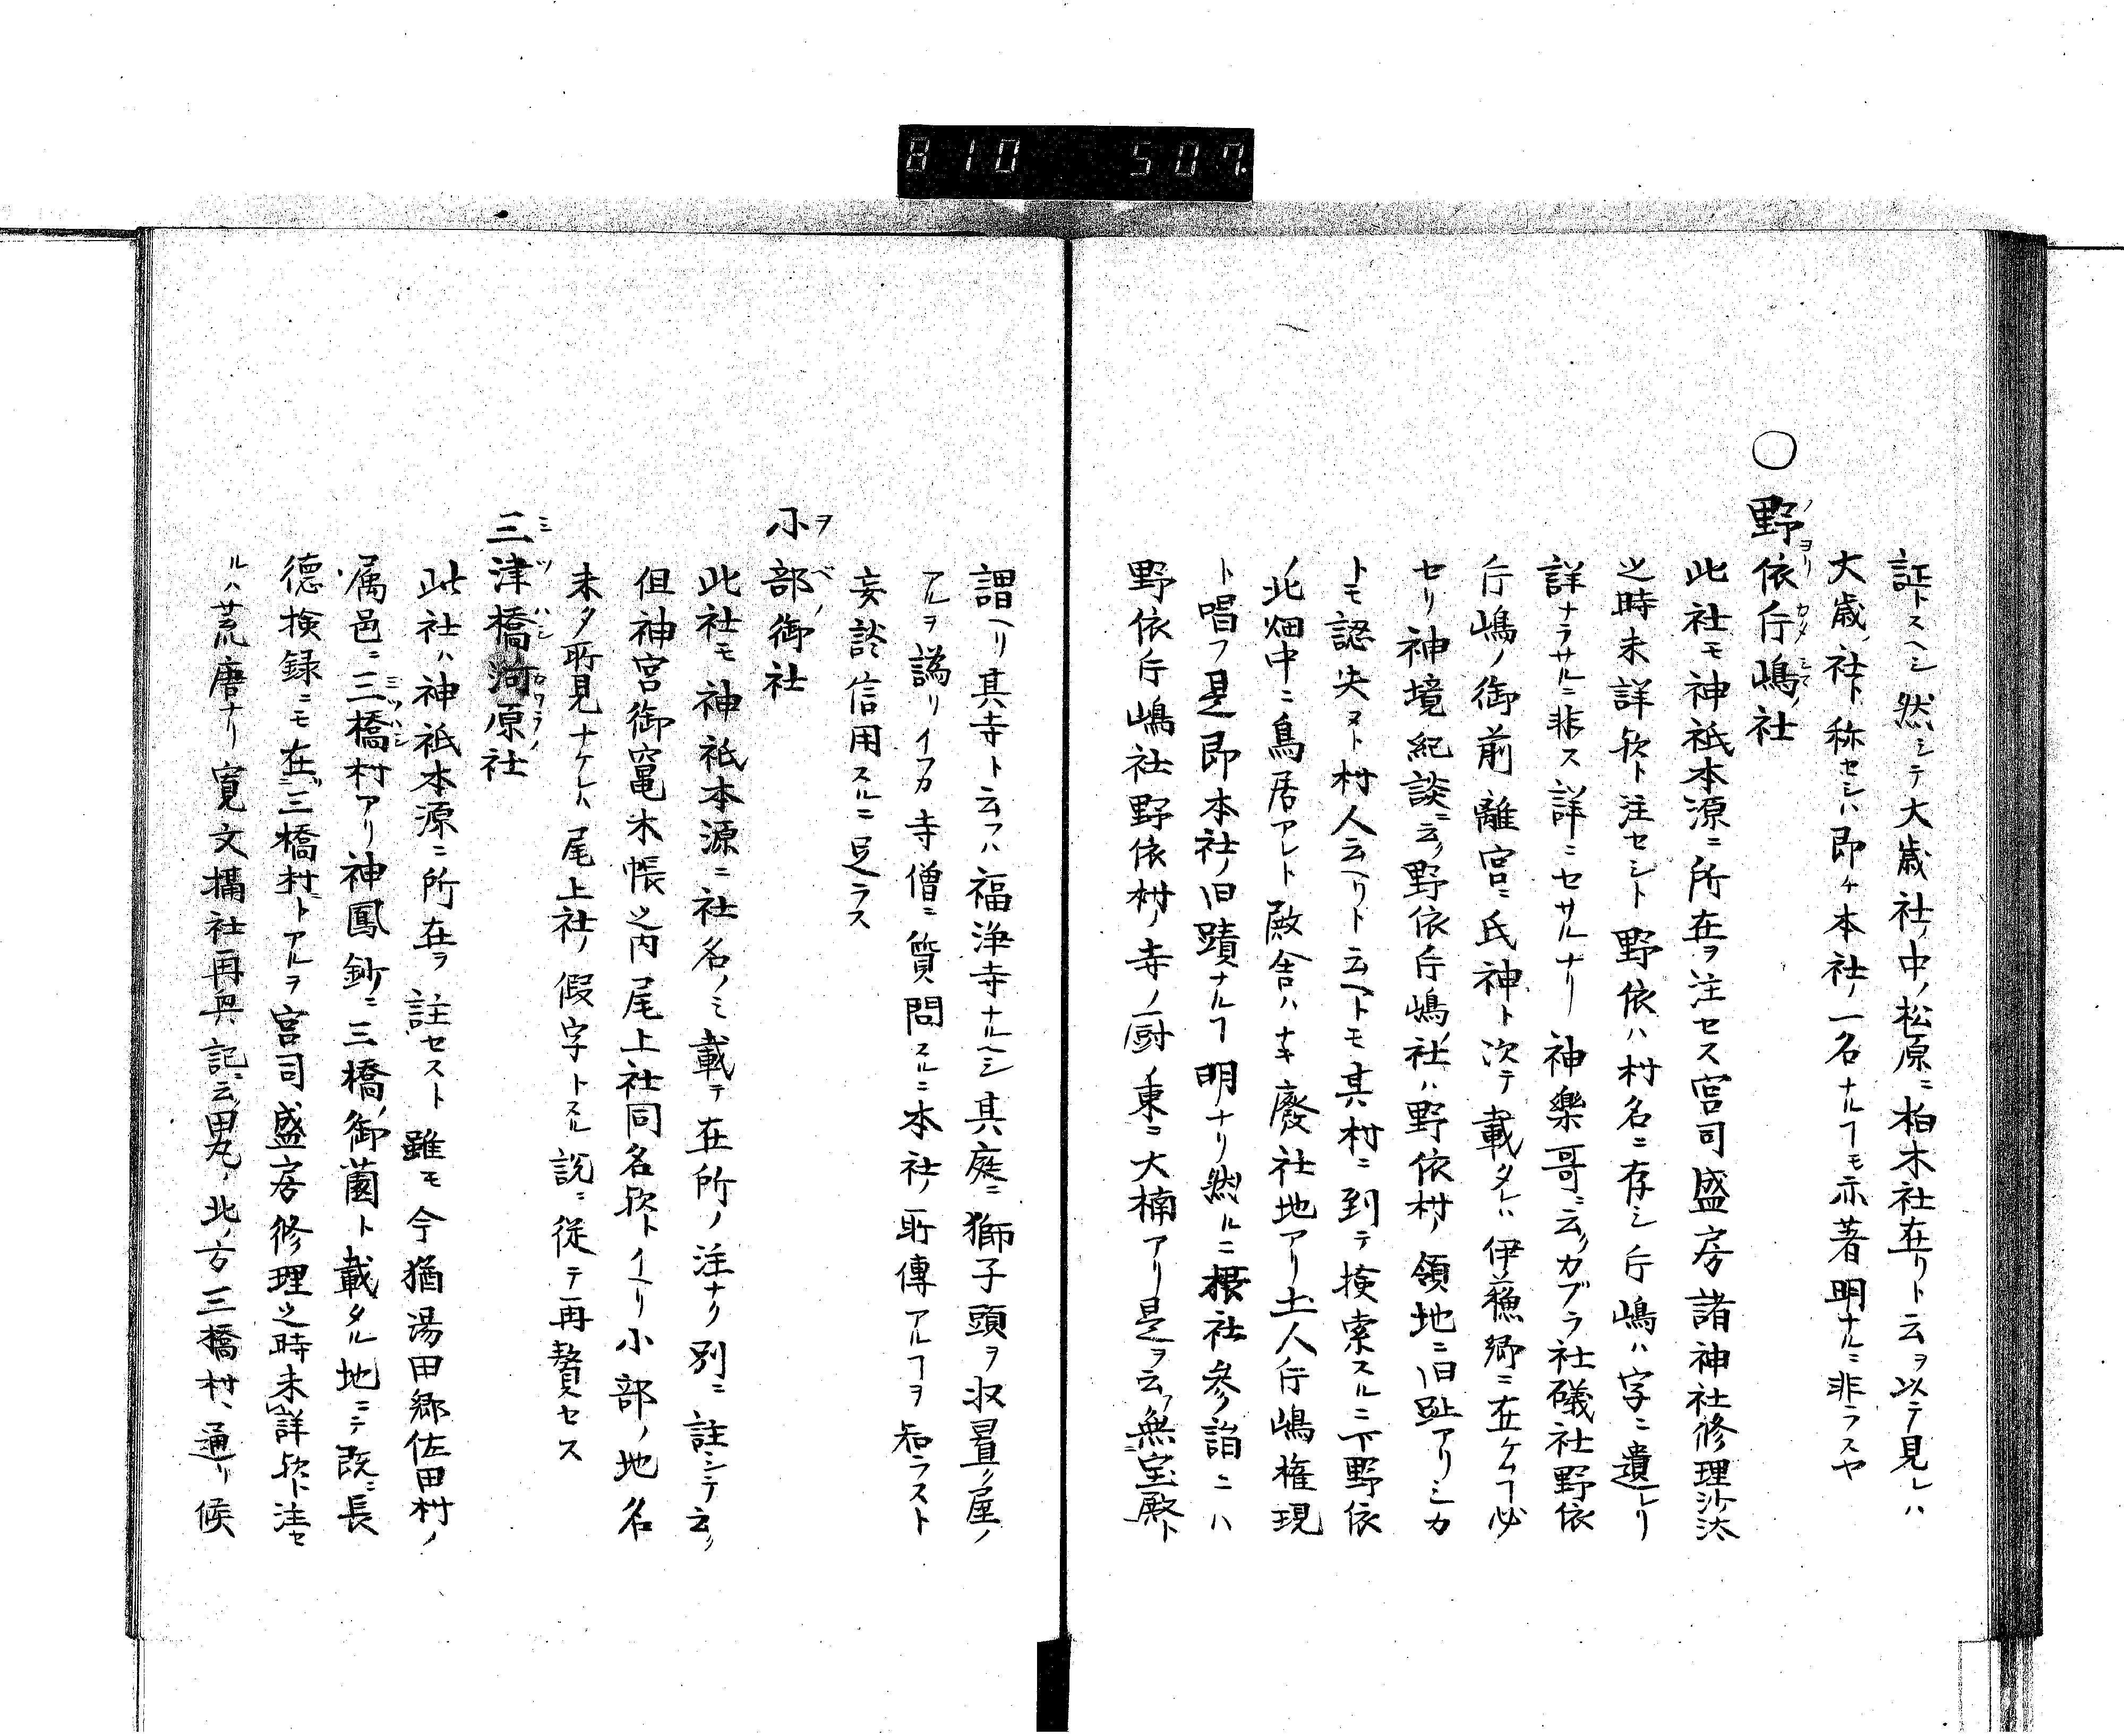 810 507
証トスヘシ然シテ大歳社ノ中ノ松原ニ柏木社在リト云ヲ以テ見レハ
大歳ノ社ト称セシハ即チ本社ノ一名ナルヿモ亦著明ナルニ非ラスヤ
○野依斤嶋社
此社モ神祇本源ニ所在ヲ注セス宮司盛房諸神社修理沙汰
之時未詳欤ト注セシト野依ハ村名ニ存シ斤嶋ハ字ニ遺レリ
詳ナラサルニ非ス詳ニセサルナリ神樂哥ニ云ノカブラ社礒社野依
斤嶋ノ御前離宮ニ氏神ト次テ載タレハ伊蘓郷ニ在ケムヿ必
セリ神境紀談ニ云ク野依斤嶋社ハ野依村ノ領地ニ旧趾アリシカ
トモ認失ヌト村人云ヘリト云ヘトモ其村ニ到テ検索スルニ下野依
ノ北畑中ニ鳥居アレト殿舎ハナキ廢社地アリ土人斤嶋権現
ト唱フ是即本社ノ旧蹟ナルヿ明ナリ然ルニ根社参詣ニハ
野依斤嶋社野依村ノ寺ノ厨ノ東ニ大楠アリ是ヲ云フ無宝殿ト
謂ヘリ其寺ト云フハ福浄寺ナルヘシ其庭ニ獅子頭ヲ収置ク屋ノ
アルヲ譌リイフカ寺僧ニ質問スルニ本社ノ所傳アルヿヲ知ラスト
妄談信用スルニ足ラス
小部御社
此社モ神祇本源ニ社名ノミ載テ在所ノ注ナク別ニ註シテ云ク
但神宮御竃木帳之内尾上社同名欤トイヘリ小部ノ地名
未タ所見ナケレハ尾上社ノ假字トスル説ニ従テ再贅セス
三津橋河原社
此社ハ神祇本源ニ所在ヲ註セスト雖モ今猶湯田郷佐田村ノ
属邑ニ三橋村アリ神鳳鈔ニ三橋御薗ト載タル地ニテ既ニ長
德検録ニモ在三橋村トアルヲ宮司盛房修理之時未詳欤ト注セ
ルハ荒唐ナリ寛文攝社再興記ニ云男丸ノ北ノ方三橋村ヘ通リ候